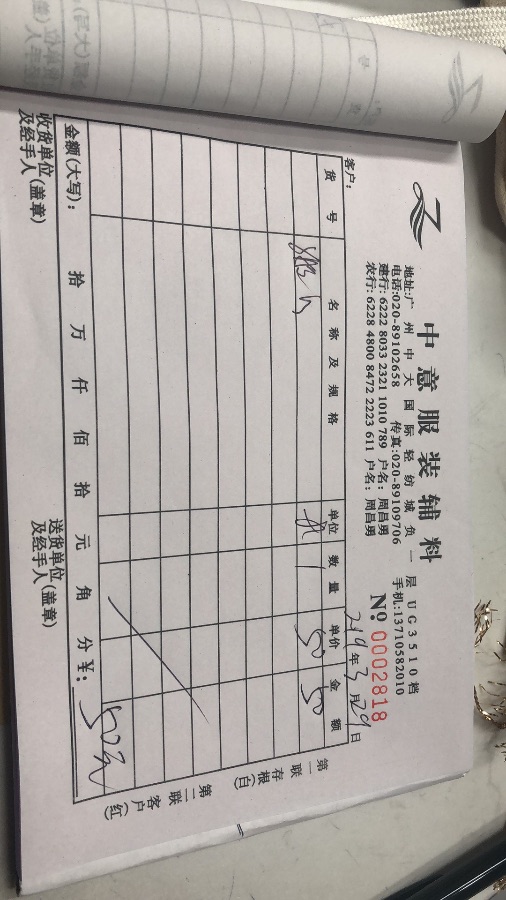 中意服装辅料
地址:广州中大国际轻纺城负一层UG3510档
电话:020-89102658 传真:020-89109706 手机:13710582010
建行: 6222 8033 2321 1010 789 户名: 周昌勇
农行: 6228 4800 8472 2223 611 户名: 周昌勇
№ 0002818
客户: 年3月29日
货号 名称及规格 单位 数量 单价 金额
1 50 50
金额(大写): 拾 万 仟 佰 拾 元 角 分 ¥: 50元
收货单位及经手人(盖章) 送货单位及经手人(盖章)
第一联 存根(白) 第二联 客户(红)